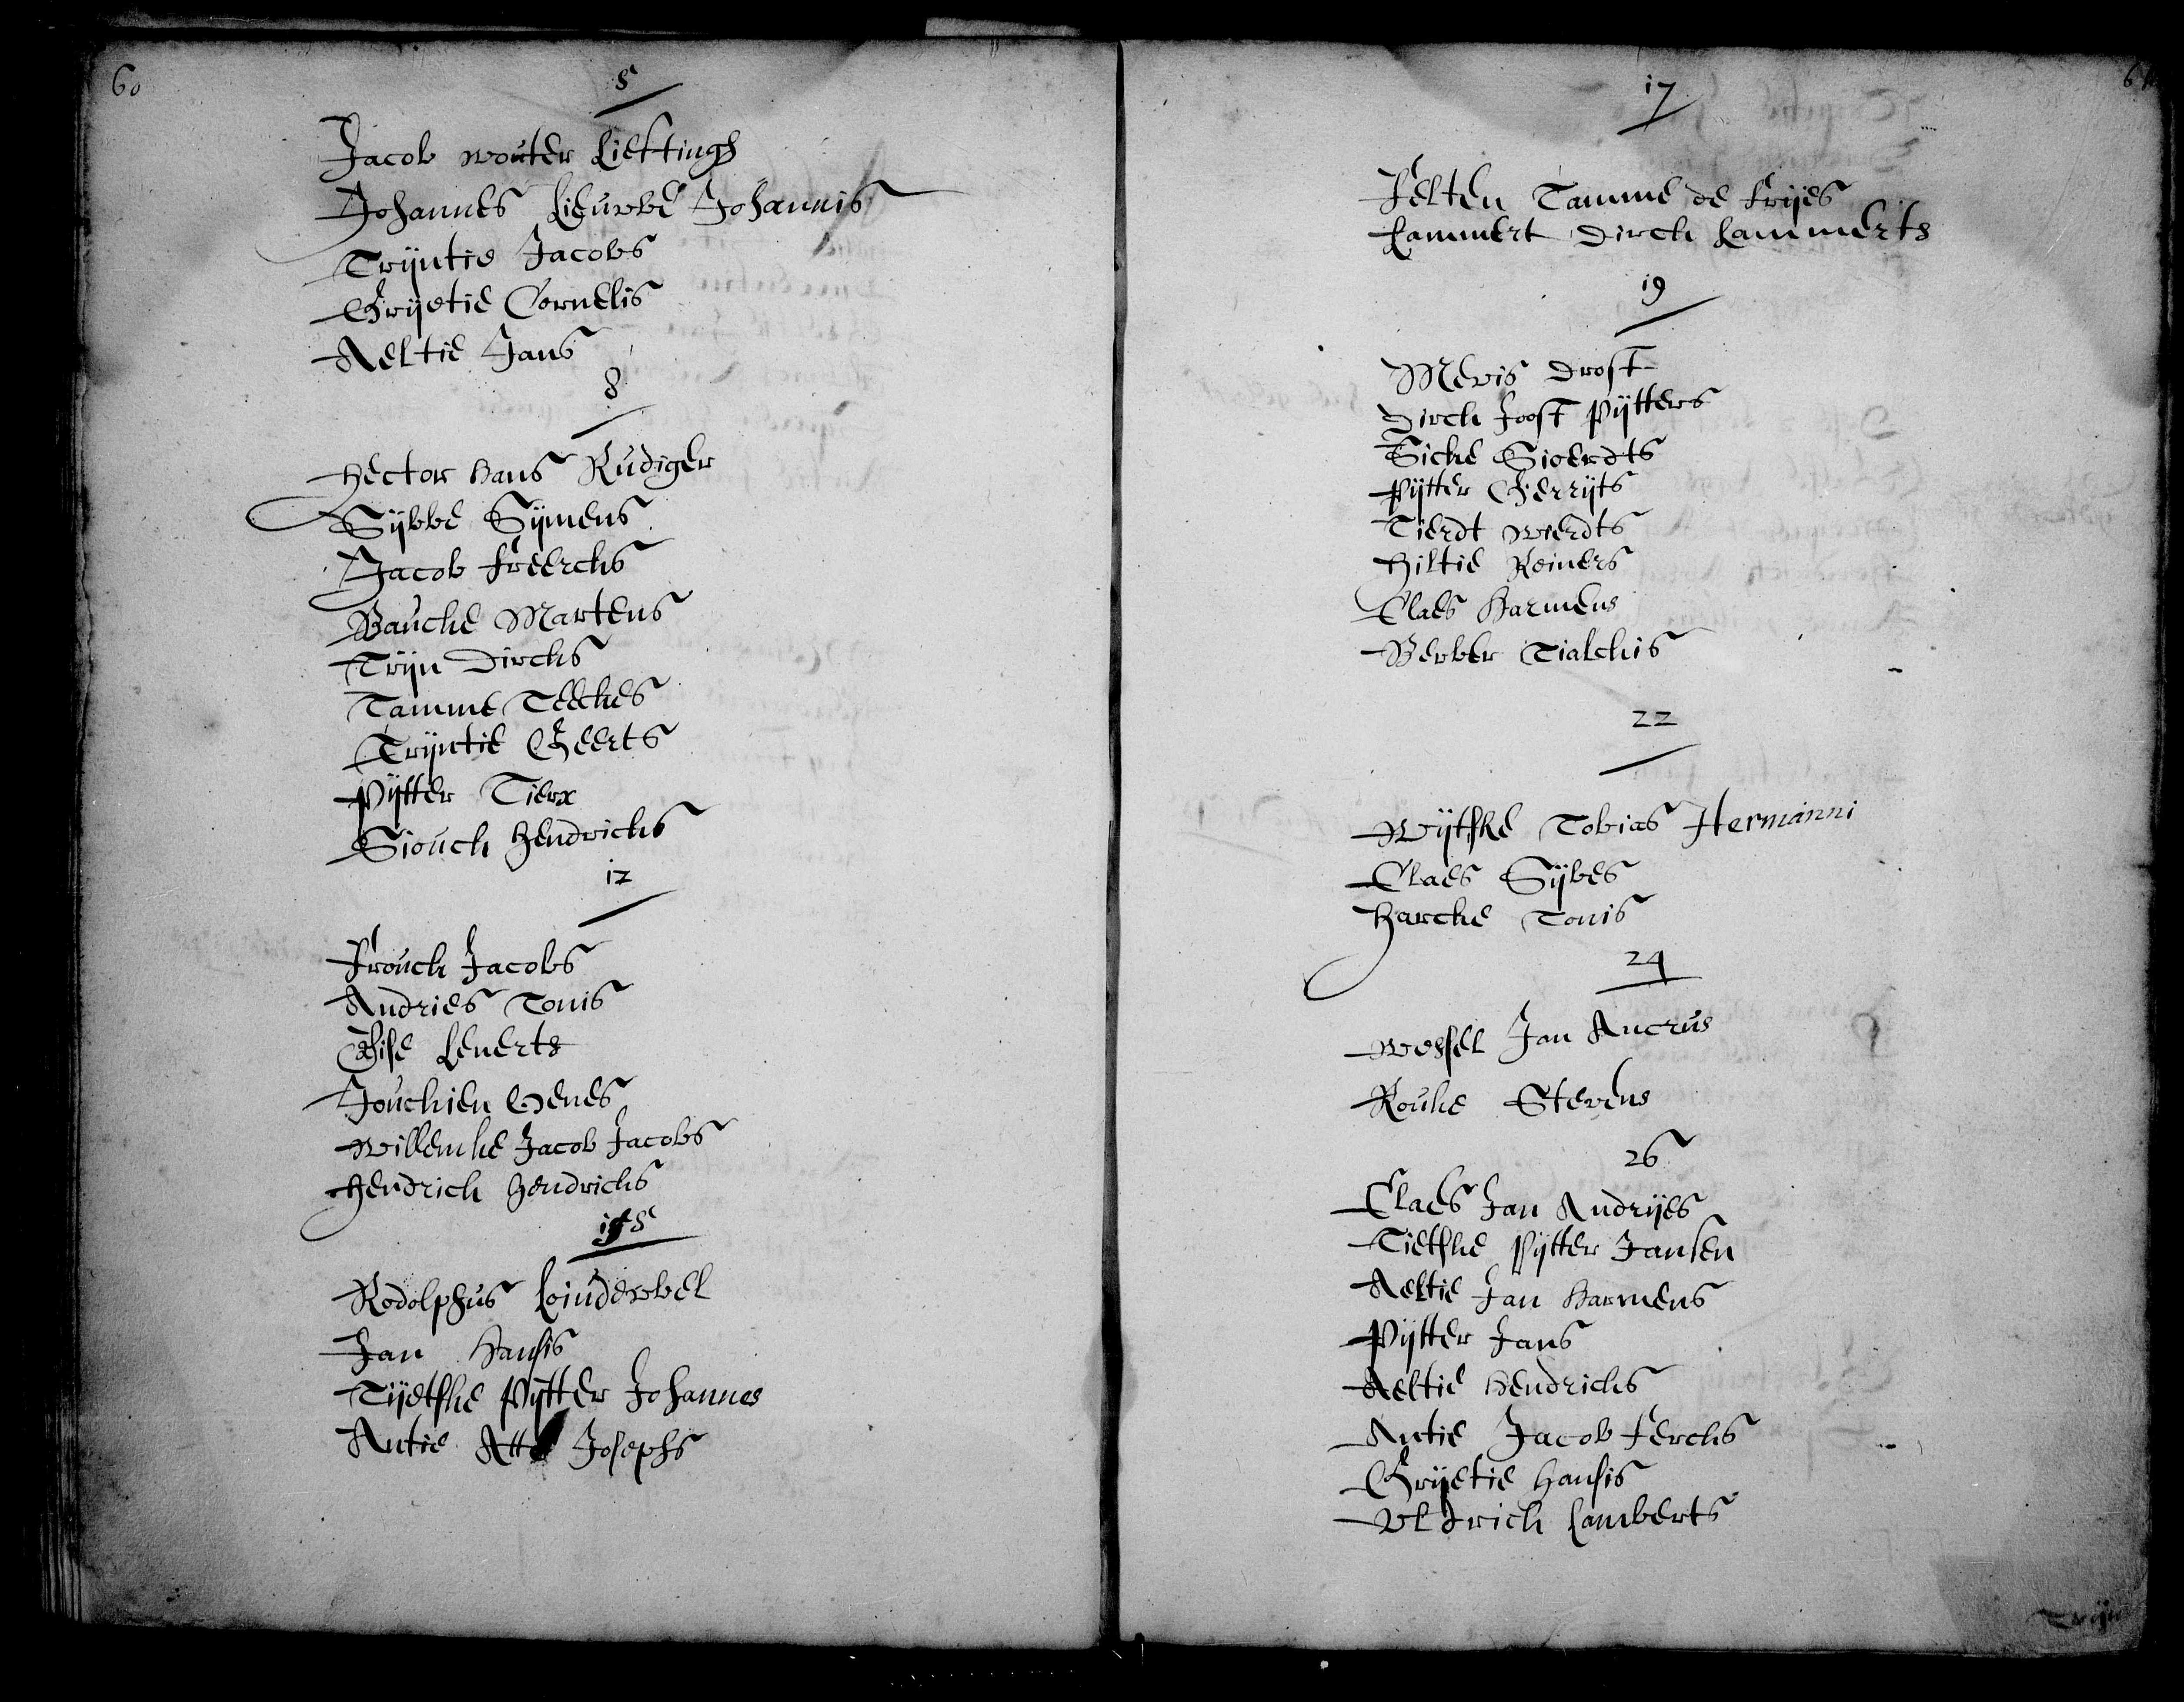 60
5
Jacob wouter Liektingh
Johannes Lieuwbe Johannis
Trijntie Jacobs
Grijetie Cornelis
Aeltie Jans
8
Hector Hans Rudiger
Sijbbe Sijmens
Jacob Freerchs
Bauche Martens
Trijn Dirchs
Tamme Teekes
Trijntie Geerts
Pijtter Tierx
Siouch Hendrichs
12
Frouch Jacobs
Andries Tonis
Gise Lenerts
Jouchien Oenes
Willemke Jacob Jacobs
Hendrich Hendrichs
15
Rodolphus
Jan Hansis
Tijetske Pijtter Johannes
Antie Atte Josephs
61
17
Felten Tamme de Frijes
Lammert Dirch Lammerts
19
Mevis Drost
Dirch Joost Pijtters
Sicke Sioerdts
Pijtter Gerrijts
Tierdt Wierdts
Hiltie Reiners
Claes Harmens
Berber Tialchis
22
Wijtske Tobias Hermanni
Claes Sijbes
Harcke Tonis
24
Wessel Jan Ancrus
Rouke Stevens
26
Claes Jan Andrijes
Tietske Pijtter Jansen
Aeltie Jan Harmens
Pijtter Jans
Aeltie Hendrichs
Antie Jacob Ferchs
Grijetie Hansis
Uldrich Lamberts
Trijn